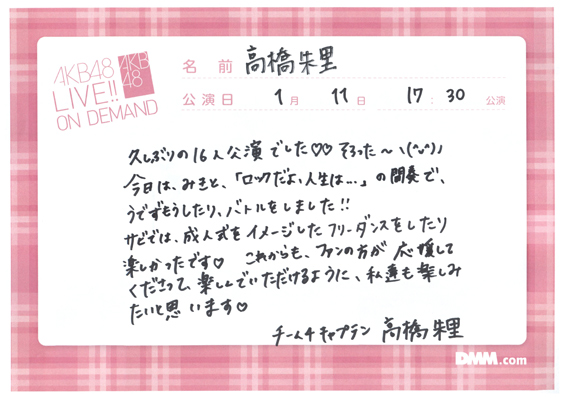 AKB48
LIVE!!
ON DEMAND
AKB
48
名 前 高橋朱里
公演日 1月 11日 17:30 公演
久しぶりの16人公演でした♡♡ そろった〜ヽ(^o^)ノ
今日は、みきと、「ロックだよ、人生は…」の間奏で、
うでずもうしたり、バトルをしました!!
サビでは、成人式をイメージしたフリーダンスをしたり
楽しかったです♡ これからも、ファンの方が応援して
くださって、楽しんでいただけるように、私達も楽しみ
たいと思います♡
チーム4 キャプテン 高橋朱里
DMM.com